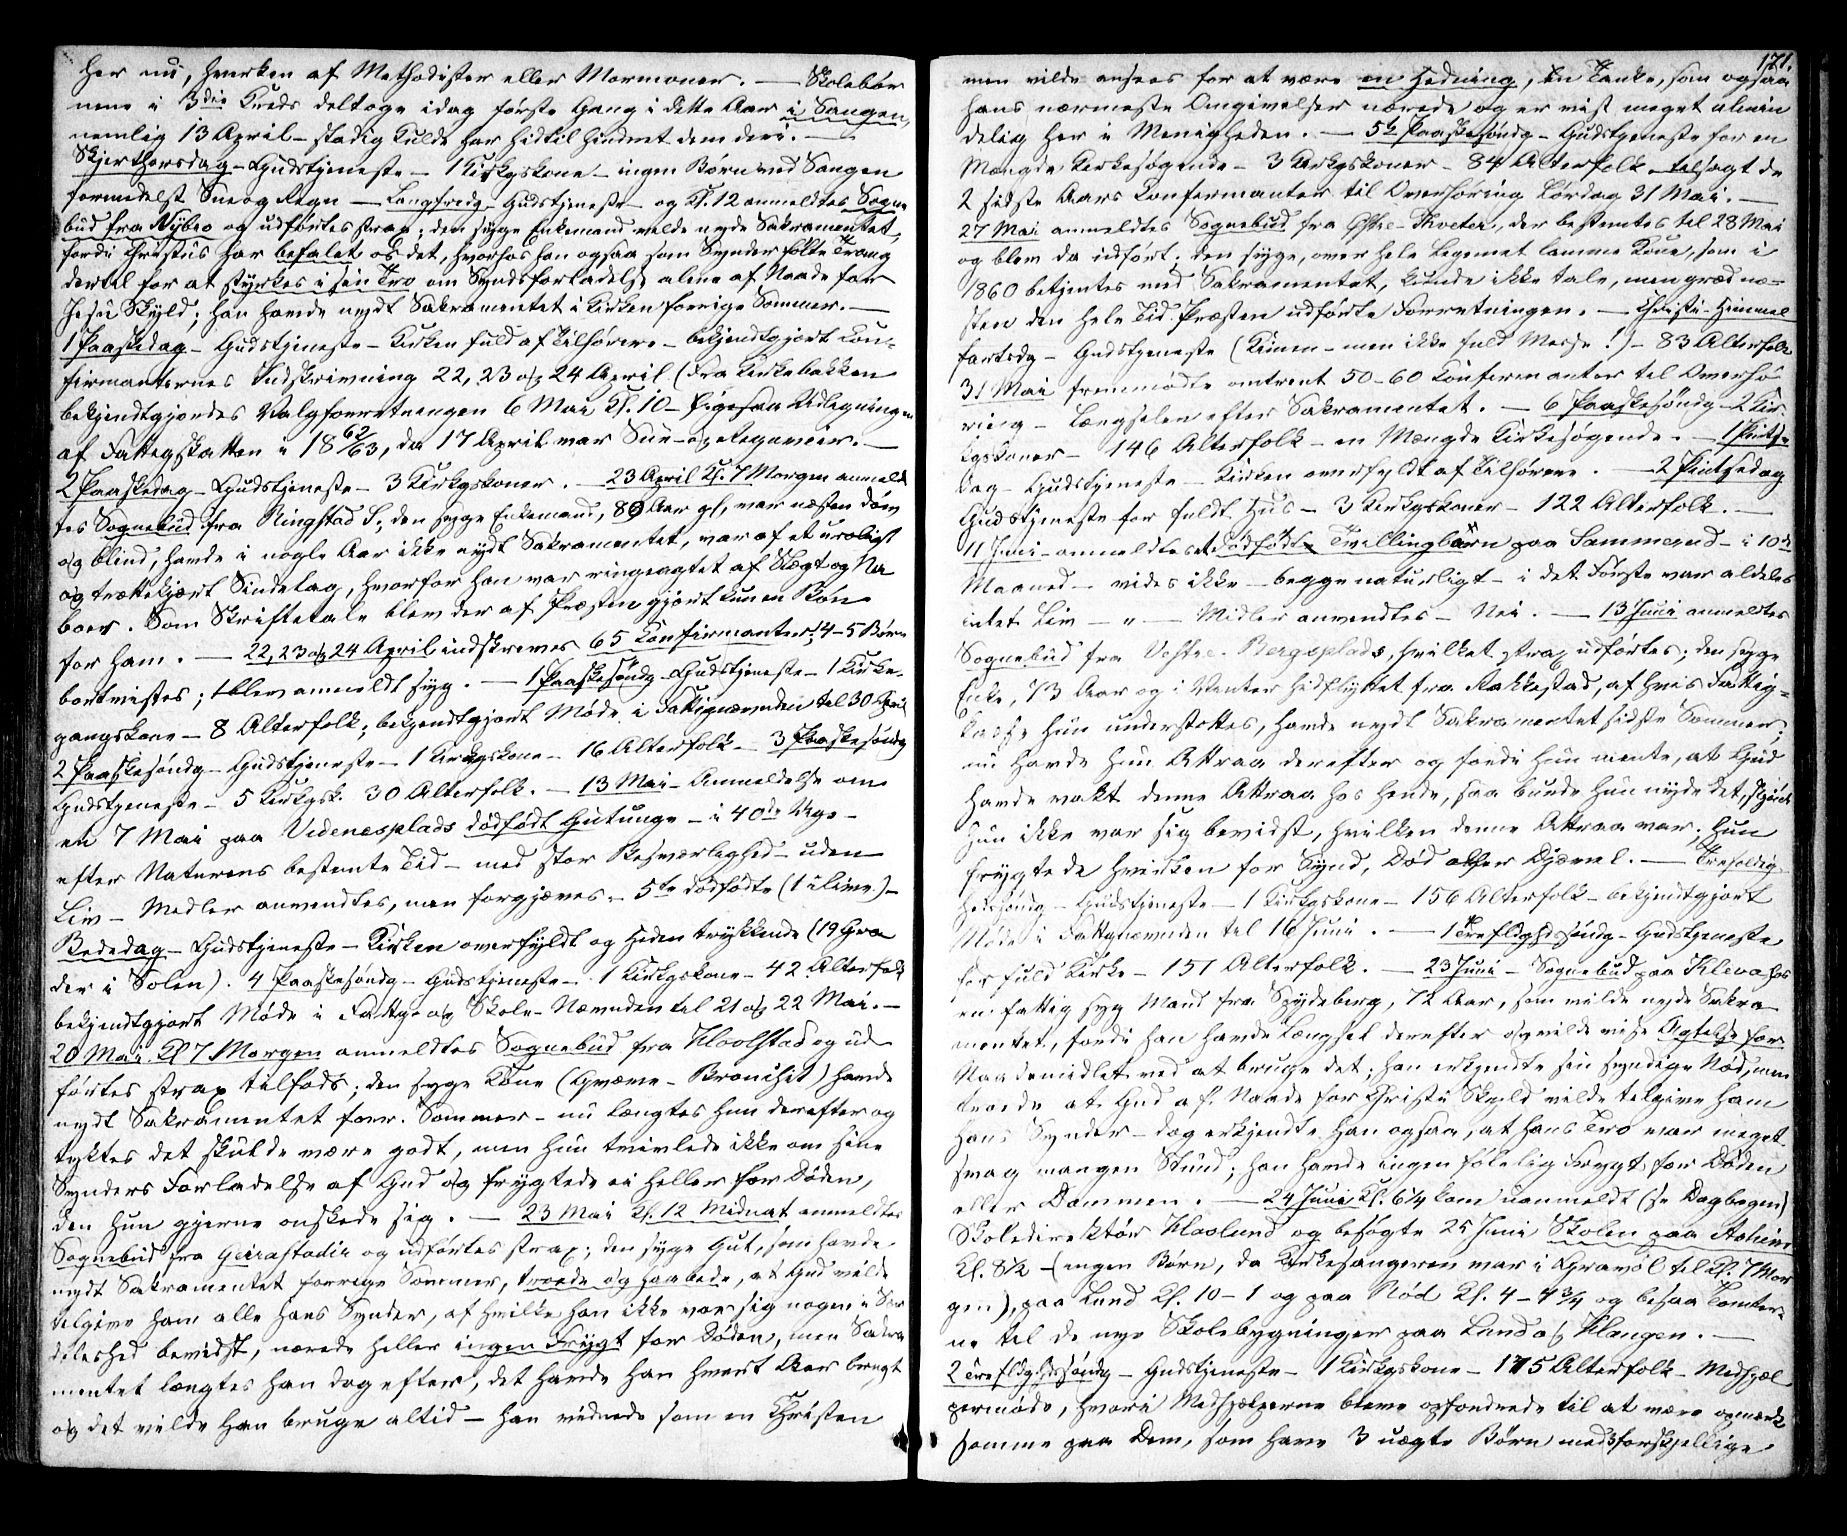 her nu, hverken af Methodister eller Mormoner. — Skolebør
nene i 3die Kreds deltoge idag første Gang i dette Aar i Sangen,
nemlig 13 April – stadig Kulde har hidtil hindret dem deri. —
Skjerthorsdag – Gudstjeneste – 1 Kirkgskone – ingen Børn ved Sangen
formedelst Sne og Regn — Langfredg – Gudstjeneste – og Kl. 12 anmeldtes Sogne
bud fra Nybro og udførtes strax; den syge Enkemand vilde nyde Sakramentet,
fordi Christus har befalet os det, hvorhos han ogsaa som Synder følte Trang
dertil for at styrkes i sin Tro om Syndsforladelse alene af Naade for
Jesu Skyld; han havde nydt Sakramentet i Kirken forrige Sommer. —
1 Paaskedag – Gudstjeneste – Kirken fuld af Tilhørere – bekjendtgjort Con-
firmanternes Indskrivning 22, 23 og 24 April (Fra Kirkebakken
bekjendtgjordes Valgforretningen 6 Mai Kl. 10 – ligesaa Udlegningen
af Fattigskatten i 1862/63, da 17 April var Sne- og Regnveir. —
2 Paaskedag – Gudstjeneste – 3 Kirkgskoner. — 23 April Kl. 7 Morgen anmeld
tes Sognebud fra Ringstad S; den syge Enkemand, 89 Aar gl, var næsten døv
og blind, havde i nogle Aar ikke nydt Sakramentet, var af et uroligt
og trættekjært Sindelag, hvorfor han var ringeagtet af Slægt og Na
boer. Som Skriftetale blev der af Præsten gjort kun en Bøn
for ham. — 22, 23 og 24 April indskreves 65 Confirmanter; 4–5 Børn
bortvistes; 1 blev anmeldt syg. — 1 Paaskesøndg – Gudstjeneste – 1 Kirke-
gangskone – 8 Alterfolk; bekjendtgjort Møde i Fattignævnden til 30 April
2 Paaskesøndg – Gudstjeneste – 1 Kirkgskone – 16 Alterfolk – 3 Paaskesøndg
Gudstjeneste – 5 Kirkgsk. 30 Alterfolk. — 13 Mai – Anmeldelse om
en 7 Mai paa Videnesplads dødfødt Gutunge – i 40de Uge –
efter Naturens bestemte Tid – med stor Besværlighed – uden
Liv – Midler anvendtes, men forgjæves. – 5te dødfødte (1 i live.) –
Bededag – Gudstjeneste – Kirken overfyldt og Heden trykkende (19 Gra
der i Solen). 4 Paaskesøndg – Gudstjeneste – 1 Kirkgskone – 42 Alterfolk
bekjendtgjort Møde i Fattig- og Skole-Nævnden til 21 og 22 Mai. —
20 Mai Kl 7 Morgen anmeldtes Sognebud fra Hoolstad og ud
førtes strax tilfods; den syge Kone (Gværne – Bronchit) havde
nydt Sakramentet forr. Sommer – nu længtes hun derefter og
tyktes det skulde være godt, men hun tvivlede ikke om sine
Synders Forladelse af Gud og frygtede ei heller for Døden,
den hun gjerne ønskede sig. — 23 Mai Kl. 12 Midnat anmeldtes
Sognebud fra Geirastadie og udførtes strax; den syge Gut, som havde
nydt Sakramentet forrige Sommer, troede og haabede, at Gud vilde
tilgive ham alle hans Synder, af hvilke han ikke var sig nogen i Sær
deleshed bevidst, nærede heller ingen Frygt for Døden, men Sakra
mentet længtes han dog efter, det havde han hvert Aar brugt
og det vilde han bruge altid – han vidnede som en Christen
171.
men vilde ansees for at være en Hedning, en Tanke, som ogsaa
hans nærmeste Omgivelser nærede og er vist meget almin
delig her i Menigheden. — 5te Paaskesøndg – Gudstjeneste for en
Mængde Kirkesøgende – 3 Kirkgskoner – 84 Alterfolk – tilsagt de
2 sidste Aars Confirmanter til Overhøring Lørdag 31 Mai. —
27 Mai anmeldtes Sognebud fra Østre-Thveter, der bestemtes til 28 Mai
og blev da udført; den syge, over hele Legemet lamme Kone, som i
1860 betjentes med Sakramentet, kunde ikke tale, men græd næ-
sten den hele Tid Præsten udførte Forretningen. — Christi Himmel
fartsdg – Gudstjeneste ( – men ikke fuld Messe!) – 83 Alterfolk
31 Mai fremmødte omtrent 50–60 Confirmanter til Overhø
ring – Længselen efter Sakramentet. — 6 Paaskesøndg – 2 Kir
kgskoner – 146 Alterfolk – en Mængde Kirkesøgende. — 1 Pintse
dag – Gudstjeneste – Kirken overfyldt af Tilhørere. — 2 Pintsedag
Gudstjeneste for fuldt Hus – 3 Kirkgskoner – 122 Alterfolk. —
11 Juni – anmeldtes et dødfødte Tvillingbarn paa Sammerud – i 10de
Maaned – vides ikke – begge naturligt – i det Første var aldeles
intet Liv – " – Midler anvendtes – Nei. — 13 Juni anmeldtes
Sognebud fra Vestre-Bergsplads, hvilket strax udførtes; den syge
Enke, 73 Aar og i Vinter hidflyttet fra Rakkestad, af hvis Fattig-
kasse hun understøttes, havde nydt Sakramentet sidste Sommer;
nu havde hun Attraa derefter og fordi hun mente, at Gud
havde vakt denne Attraa hos hende, saa burde hun nyde det, skjønt
hun ikke var sig bevidst, hvilken denne Attraa var; hun
frygtede hverken for Synd, Død eller Djævel. — Trefoldig
hedssøndg – Gudstjeneste – 1 Kirkgskone – 156 Alterfolk – bekjendtgjort
Møde i Fattignævnden til 16 Juni. — 1 Trefldighdssøndg – Gudstjeneste
for fuld Kirke – 151 Alterfolk. — 23 Juni – Sognebud paa Kleva hos
en fattig syg Mand fra Spydeberg, 72 Aar, som vilde nyde Sakra
mentet, fordi han havde Længsel derefter og vilde vise Agtelse for
Naademidlet ved at bruge det; han erkjendte sin syndige Nød, men
troede at Gud af Naade for Christi Skyld vilde tilgive ham
hans Synder – dog erkjendte han ogsaa, at hans Tro var meget
svag mangen Stund; han havde ingen følelig Frygt for Døden
eller Dommen. — 24 Juni Kl. 6¼ kom uanmeldt (se Dagbogen)
Skoledirektør Haslund og besøgte 25 Juni Skolen paa Aaheim
Kl. 8½ – (ingen Børn, da Kirkesangeren var i Gravøl til Kl. 7 Mor
gen), paa Lund Kl. 10–1 og paa Nød Kl. 4–4¾ og besaa Tomter-
ne til de nye Skolebygninger paa Lund og Klangen. —
2 Trefldghdssøndg – Gudstjeneste – 1 Kirkgskone – 175 Alterfolk – Medhjæl
permøde, hvori Medhjælperne bleve opfordrede til at være opmærk
somme paa Dem, som have 3 uægte Børn med 3 forskjellige